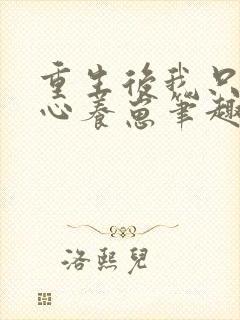 重生後我只
心養崽筆趣
洛熙兒